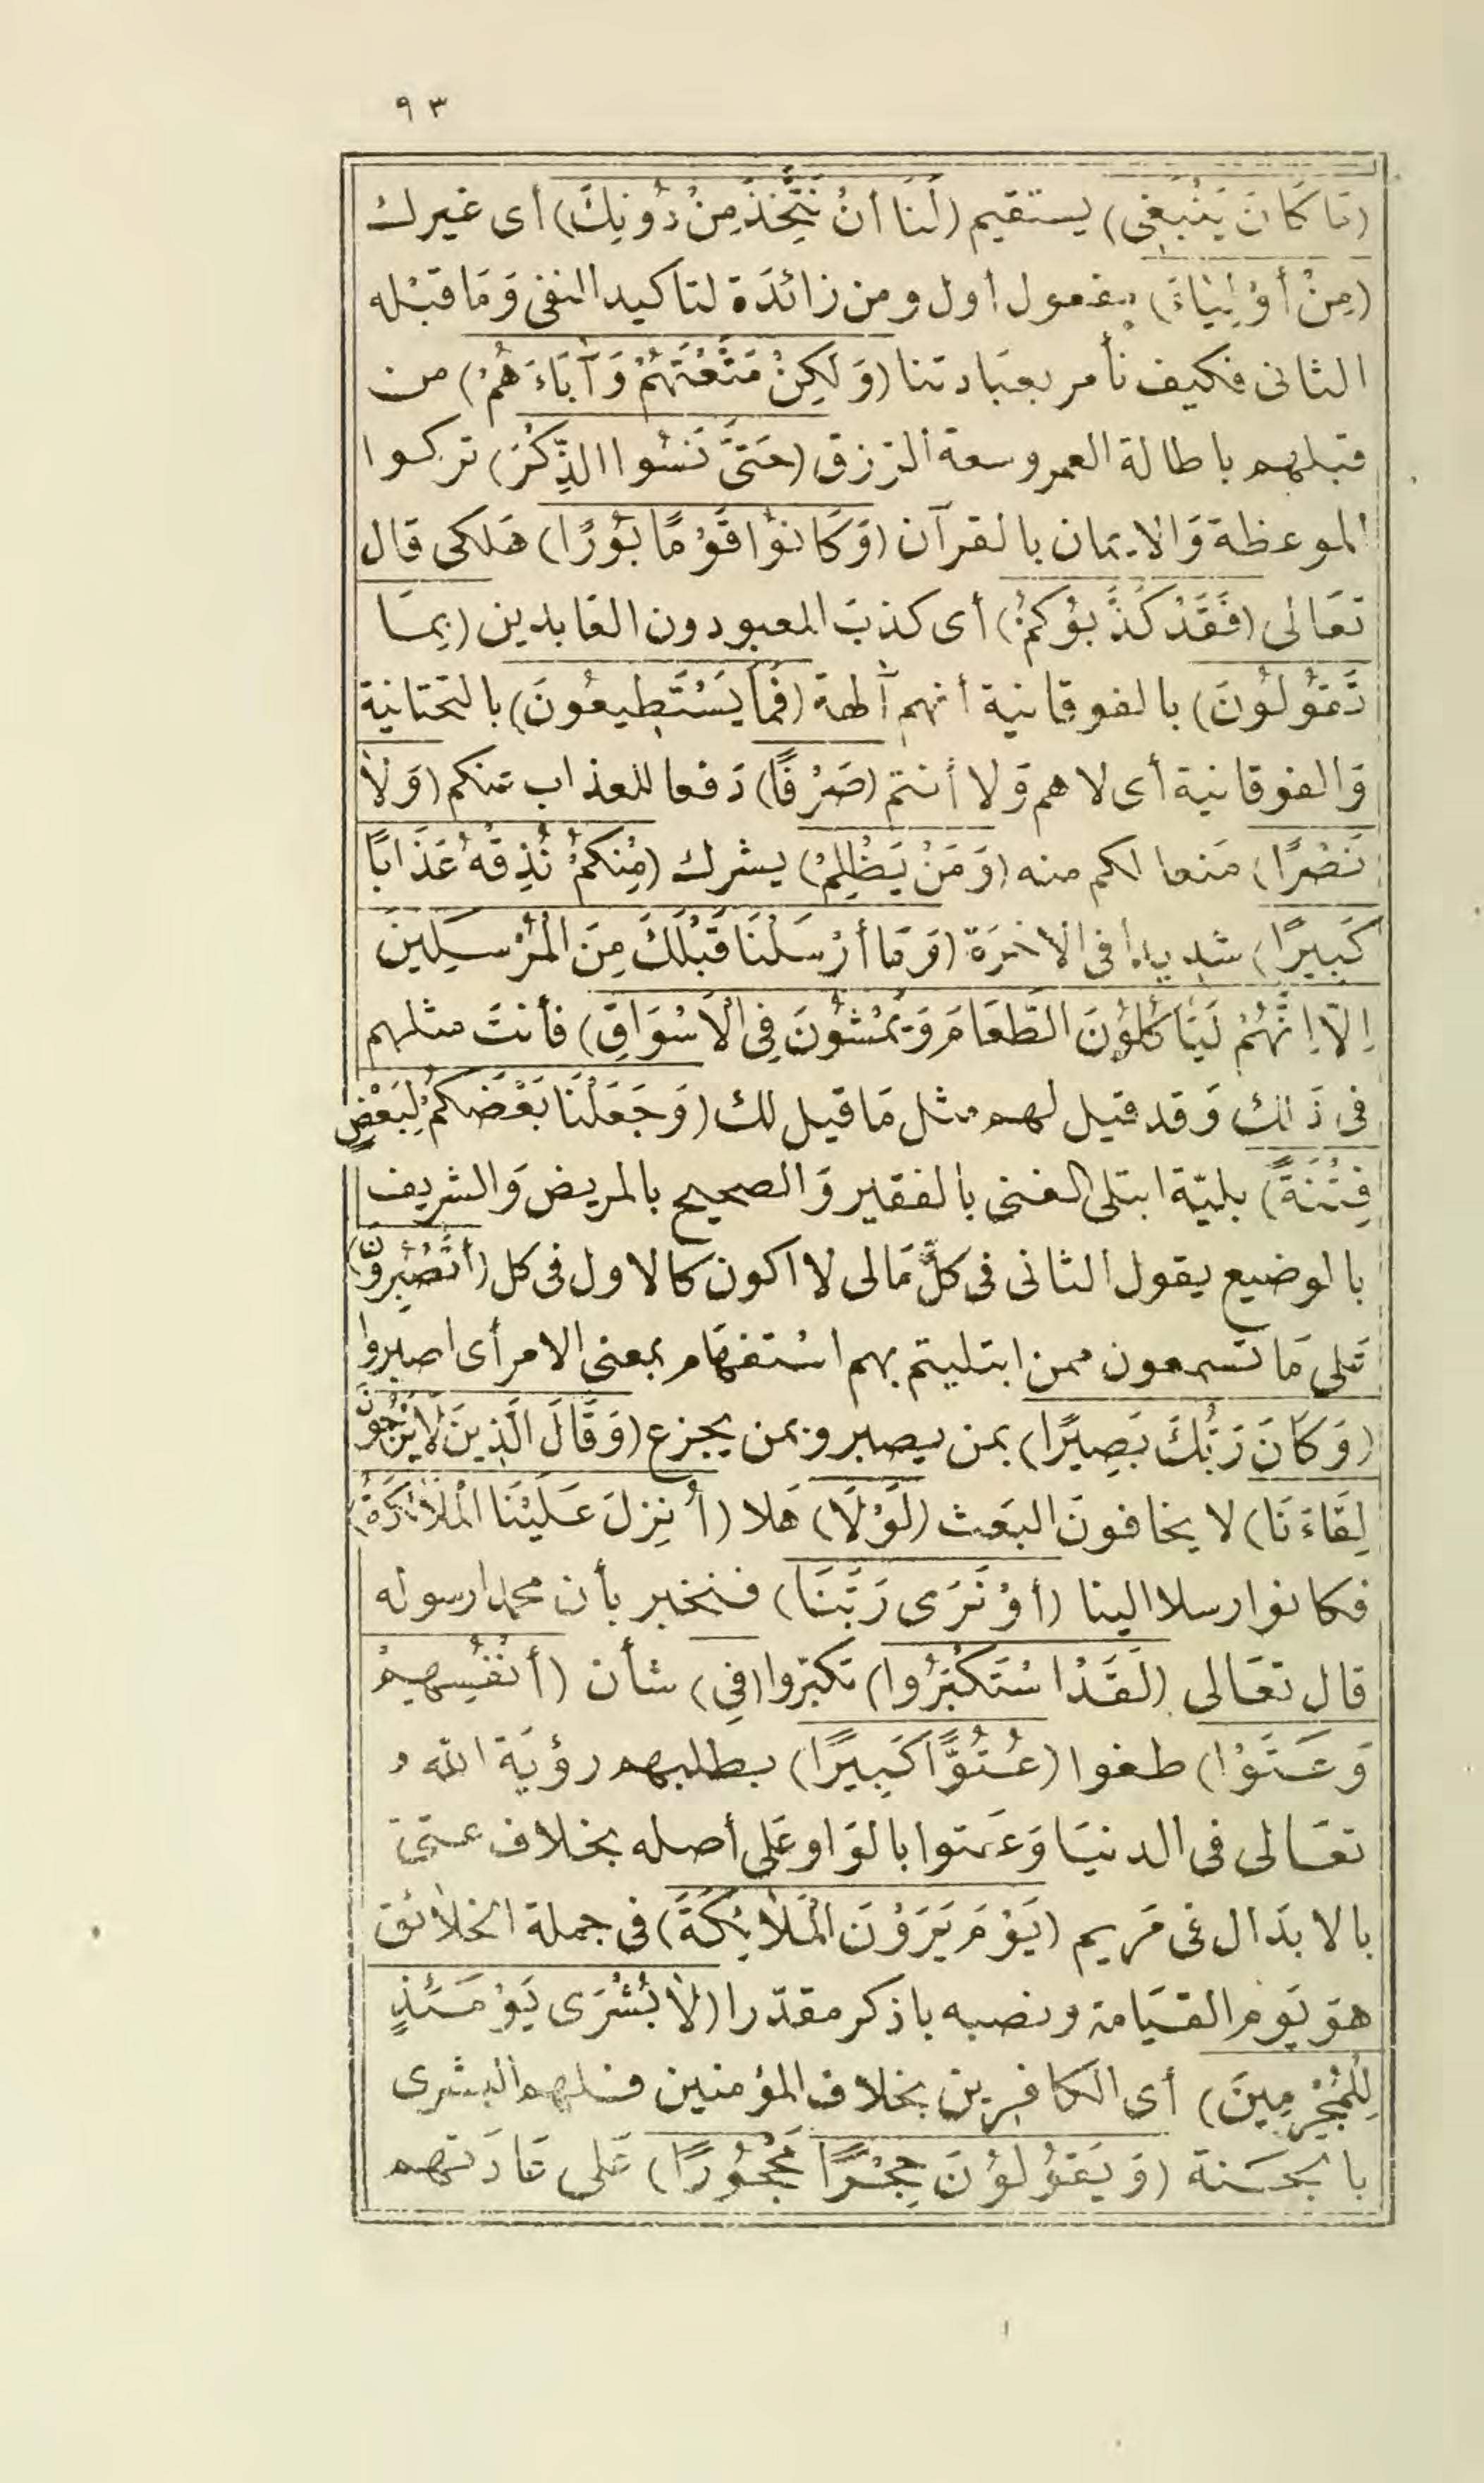 ٩٣
(مَا كَانَ يَنْبَغِى) يستقيم (لَنَا أَنْ نَتَّخِذَ مِنْ دُونِكَ) أى غيرك
(مِنْ أَوْلِيَاءَ) مفعول أول ومن زائدَة لتاكيد النفى وَمَا قبْله
الثانى فكيف نأمر بعبَادتنا (وَلَكِنْ مَتَّعْتَهُمْ وَآبَاءَهُمْ) من
قبلهم باطالة العمر وسعة الرزق (حَتَّى نَسُوا الذِّكْرَ) تركوا
الموعظة وَالايمان بالقرآن (وَكَانُوا قَوْمًا بُورًا) هَلكى قال
تعَالى (فَقَدْ كَذَّبُوكُمْ) أى كذبَ المعبودون العَابدين (بِمَا
تَقُولُونَ) بالفوقانية أنهم آلهة (فَمَا يَسْتَطِيعُونَ) بالتحتانية
وَالفوقانية أى لا هم وَلا أنتم (صَرْفًا) دَفعا للعذاب عنكم (وَلَا
نَصْرًا) مَنعا لكم منه (وَمَنْ يَظْلِمْ) يشرك (مِنْكُمْ نُذِقْهُ عَذَابًا
كَبِيرًا) شديدا فى الاخرَة (وَمَا أَرْسَلْنَا قَبْلَكَ مِنَ الْمُرْسَلِينَ
اِلَّا اِنَّهُمْ لَيَأْكُلُونَ الطَّعَامَ وَيَمْشُونَ فِى الْاَسْوَاقِ) فأنتَ مثلهم
فى ذَلك وَقد قيل لهم مثل مَا قيل لك (وَجَعَلْنَا بَعْضَكُمْ لِبَعْضٍ
فِتْنَةً) بليّة ابتلى الغنى بالفقير وَالصحيح بالمريض وَالشريف
بالوضيع يقول الثانى فى كلّ مَالى لا اكون كالاول فى كل (أَتَصْبِرُونَ)
عَلى مَا تسمعون ممن ابتليتم بهم اسْتفهَام بمعنى الامر أى اصبروا
(وَكَانَ رَبُّكَ بَصِيرًا) بمن يصبر وبمن يجزع (وَقَالَ الَّذِينَ لَا يَرْجُونَ
لِقَاءَنَا) لا يخافونَ البعَث (لَوْلَا) هَلا (أُنْزِلَ عَلَيْنَا الْمَلَائِكَةُ)
فكانوا رسلا الينا (أَوْ نَرَى رَبَّنَا) فنخبر بأن محمدا رسوله
قال تعَالى (لَقَدْ اسْتَكْبَرُوا) تكبرّوا (فِى) شأن (أَنْفُسِهِمْ
وَعَتَوْا) طغوا (عُتُوًّا كَبِيرًا) بطلبهم رؤيَة الله
تعَالى فى الدنيَا وَعَتوا بالوَاو عَلى أصله بخلاف عتى
بالابدَال فى مَريم (يَوْمَ يَرَوْنَ الْمَلَائِكَةَ) فى جملة الخلائق
هوَ يَوم القيَامة ونصبه باذكر مقدّرا (لَا بُشْرَى يَوْمَئِذٍ
لِلْمُجْرِمِينَ) أى الكافرين بخلاف المؤمنين فلهم البشرى
بالجَنة (وَيَقُولُونَ حِجْرًا مَحْجُورًا) عَلى عَادَتهم